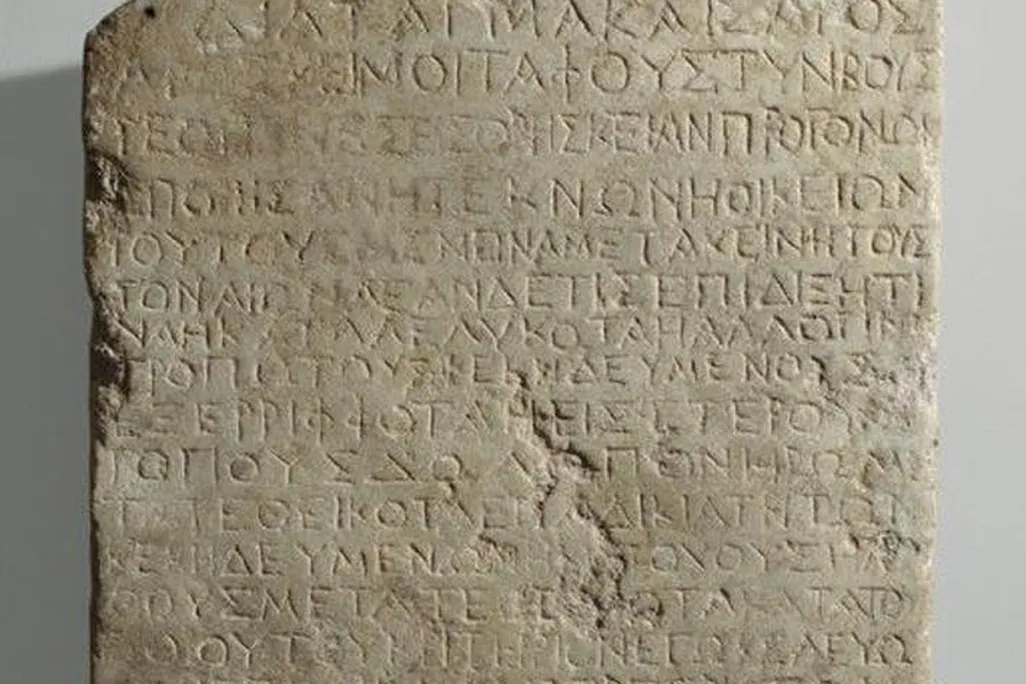 ΔΙΑΤΑΓΜΑ ΚΑΙΣΑΡΟΣ
ΜΟΙ ΤΑΦΟΥΣ ΤΥΝΒΟΥΣ
ΕΙΣ ΘΡΗΣΚΕΙΑΝ ΠΡΟΓΟΝΩΝ
ΕΠΟΙΗΣΑΝ Η ΤΕΚΝΩΝ Η ΟΙΚΕΙΩΝ
ΤΟΥΤΟΥΣ ΜΕΝΕΙΝ ΑΜΕΤΑΚΕΙΝΗΤΟΥΣ
ΤΟΝ ΑΙΩΝΑ ΕΑΝ ΔΕ ΤΙΣ ΕΠΙΔΙΞΗ ΤΙ
ΝΑ Η ΚΑΤΑΛΕΛΥΚΟΤΑ Η ΑΛΛΩ ΤΙΝΙ
ΤΡΟΠΩ ΤΟΥΣ ΚΕΚΗΔΕΥΜΕΝΟΥΣ
ΕΞΕΡΡΙΦΦΟΤΑ Η ΕΙΣ ΕΤΕΡΟΥΣ
ΤΟΠΟΥΣ ΔΩΛΩ ΠΟΝΗΡΩ ΜΕ
ΤΑΤΕΘΕΙΚΟΤΑ ΕΠ ΑΔΙΚΙΑ ΤΗ ΤΩΝ
ΚΕΚΗΔΕΥΜΕΝΩΝ Η ΚΑΤΟΧΟΥΣ Η ΛΙ
ΘΟΥΣ ΜΕΤΑΤΕΘΕΙΚΟΤΑ ΚΑΤΑ ΤΟΥ
ΤΟΙΟΥΤΟΥ ΚΡΙΤΗΡΙΟΝ ΕΓΩ ΚΕΛΕΥΩ